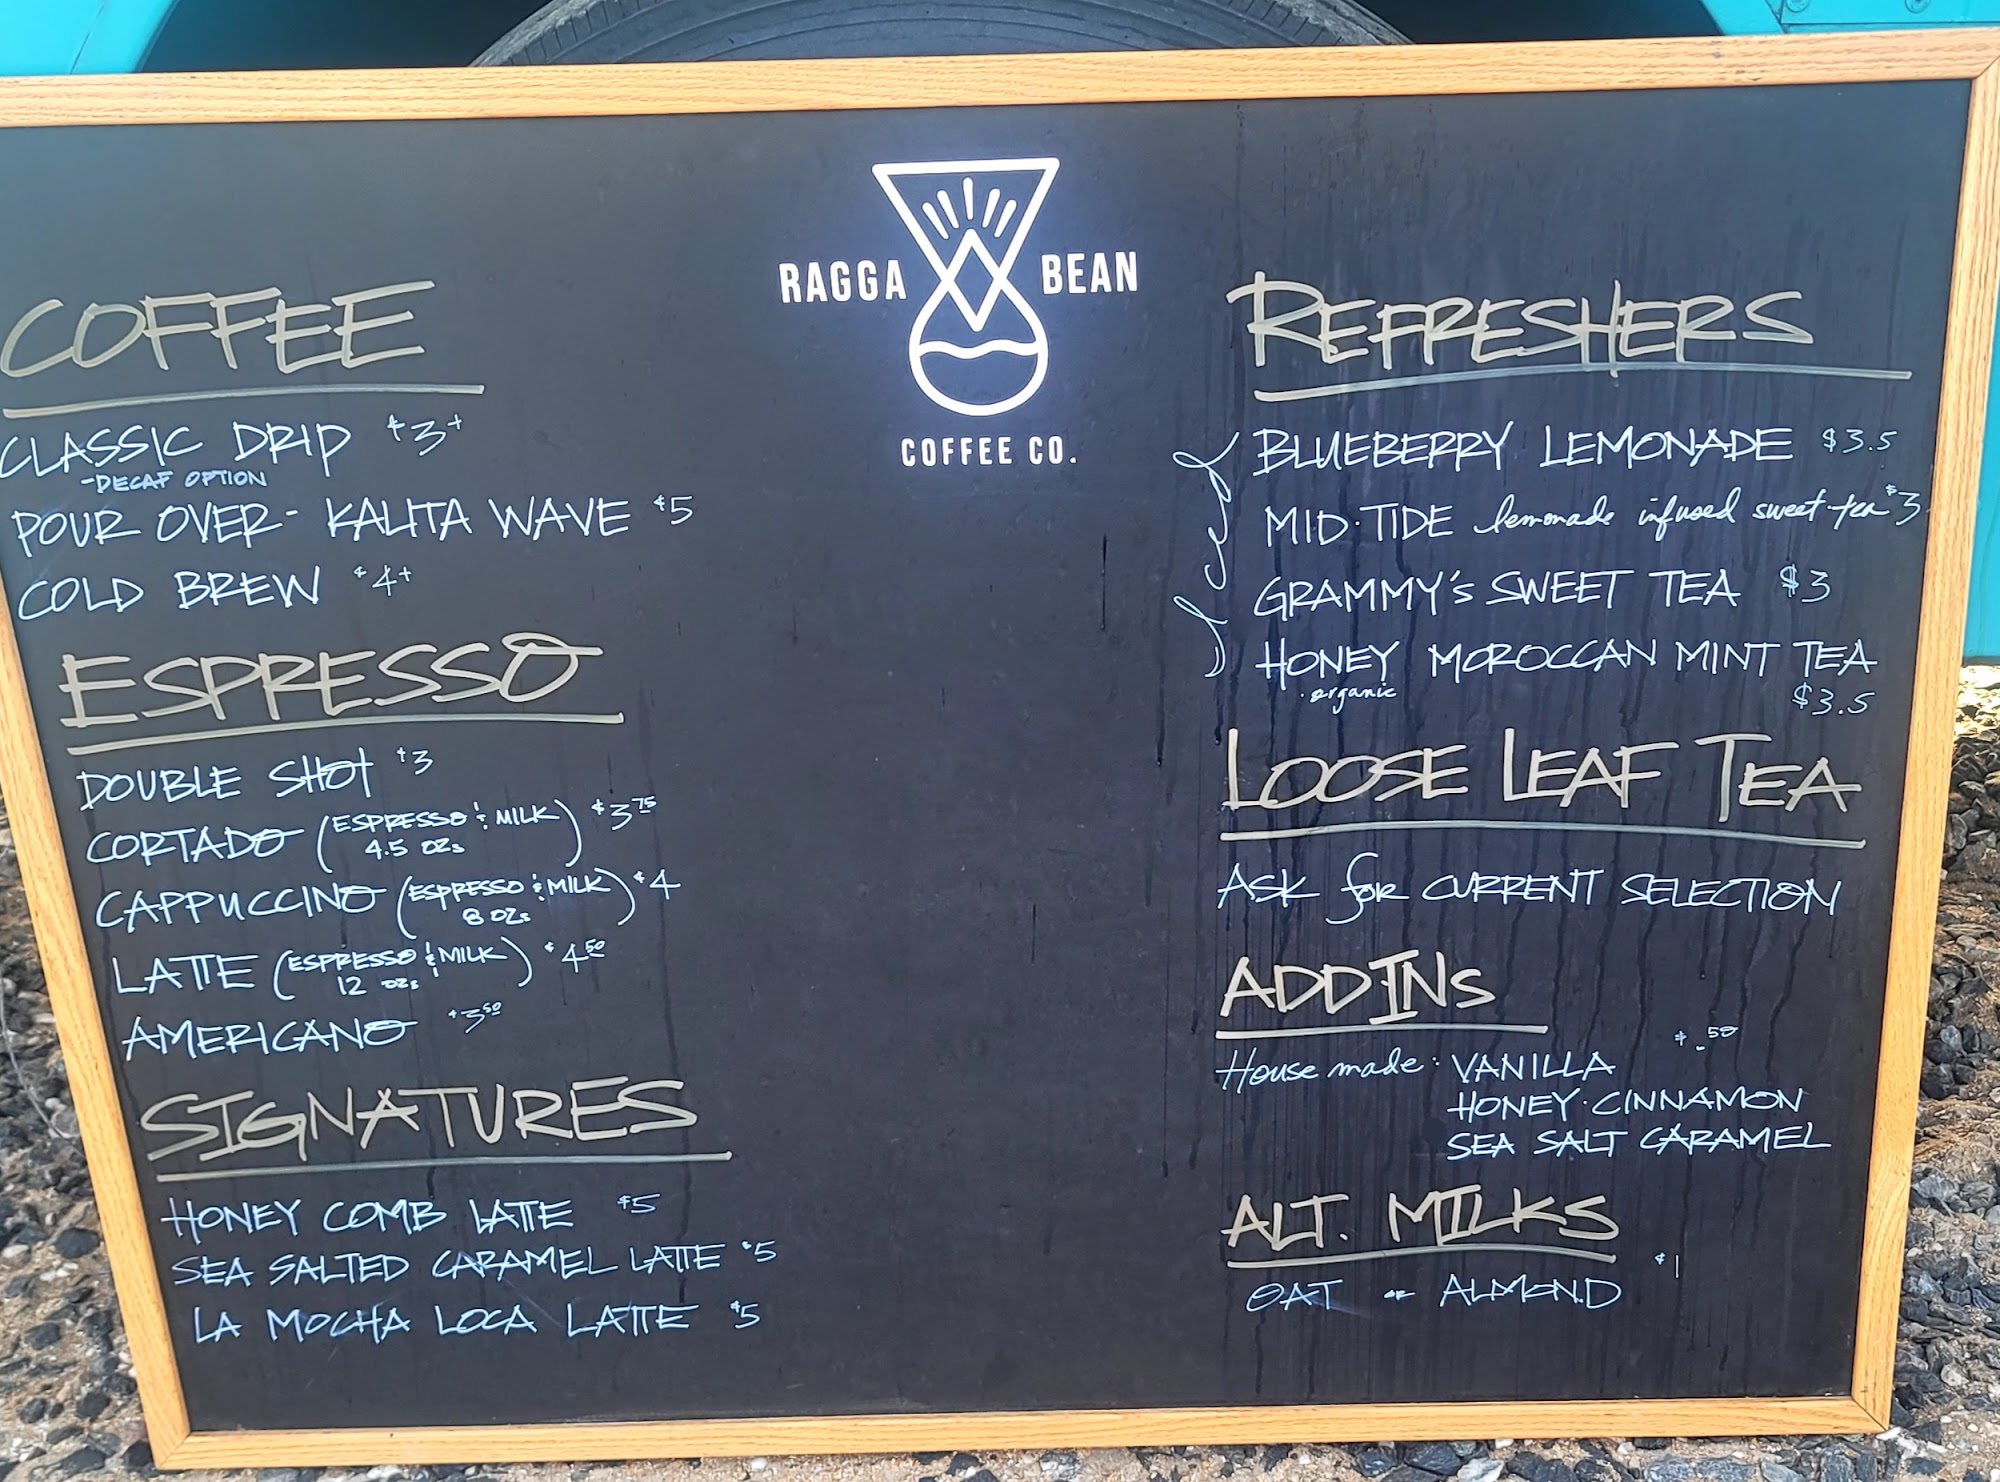 RAGGA BEAN
COFFEE CO.
COFFEE
CLASSIC DRIP $3+
-DECAF OPTION
POUR OVER - KALITA WAVE $5
COLD BREW $4+
ESPRESSO
DOUBLE SHOT $3
CORTADO (ESPRESSO & MILK) $3.75
4.5 OZs
CAPPUCCINO (ESPRESSO & MILK) $4
8 OZs
LATTE (ESPRESSO & MILK) $4.50
12 OZs
AMERICANO $3.50
SIGNATURES
HONEY COMB LATTE $5
SEA SALTED CARAMEL LATTE $5
LA MOCHA LOCA LATTE $5
REFRESHERS
Iced
BLUEBERRY LEMONADE $3.5
MID·TIDE lemonade infused sweet tea $3
GRAMMY'S SWEET TEA $3
HONEY MOROCCAN MINT TEA
organic $3.5
LOOSE LEAF TEA
ASK for CURRENT SELECTION
ADD INs
House made: VANILLA $.50
HONEY·CINNAMON
SEA SALT CARAMEL
ALT. MILKS
OAT or ALMOND $1